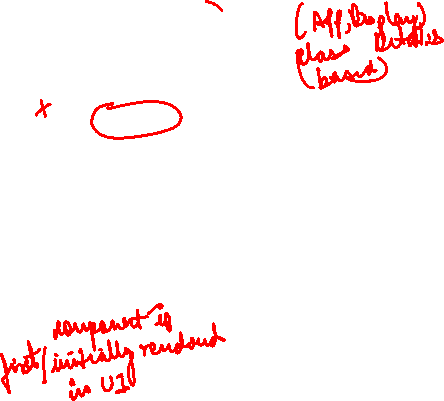 (App, Display
class Details
based)
x
component is
first/initially rendered
in UI